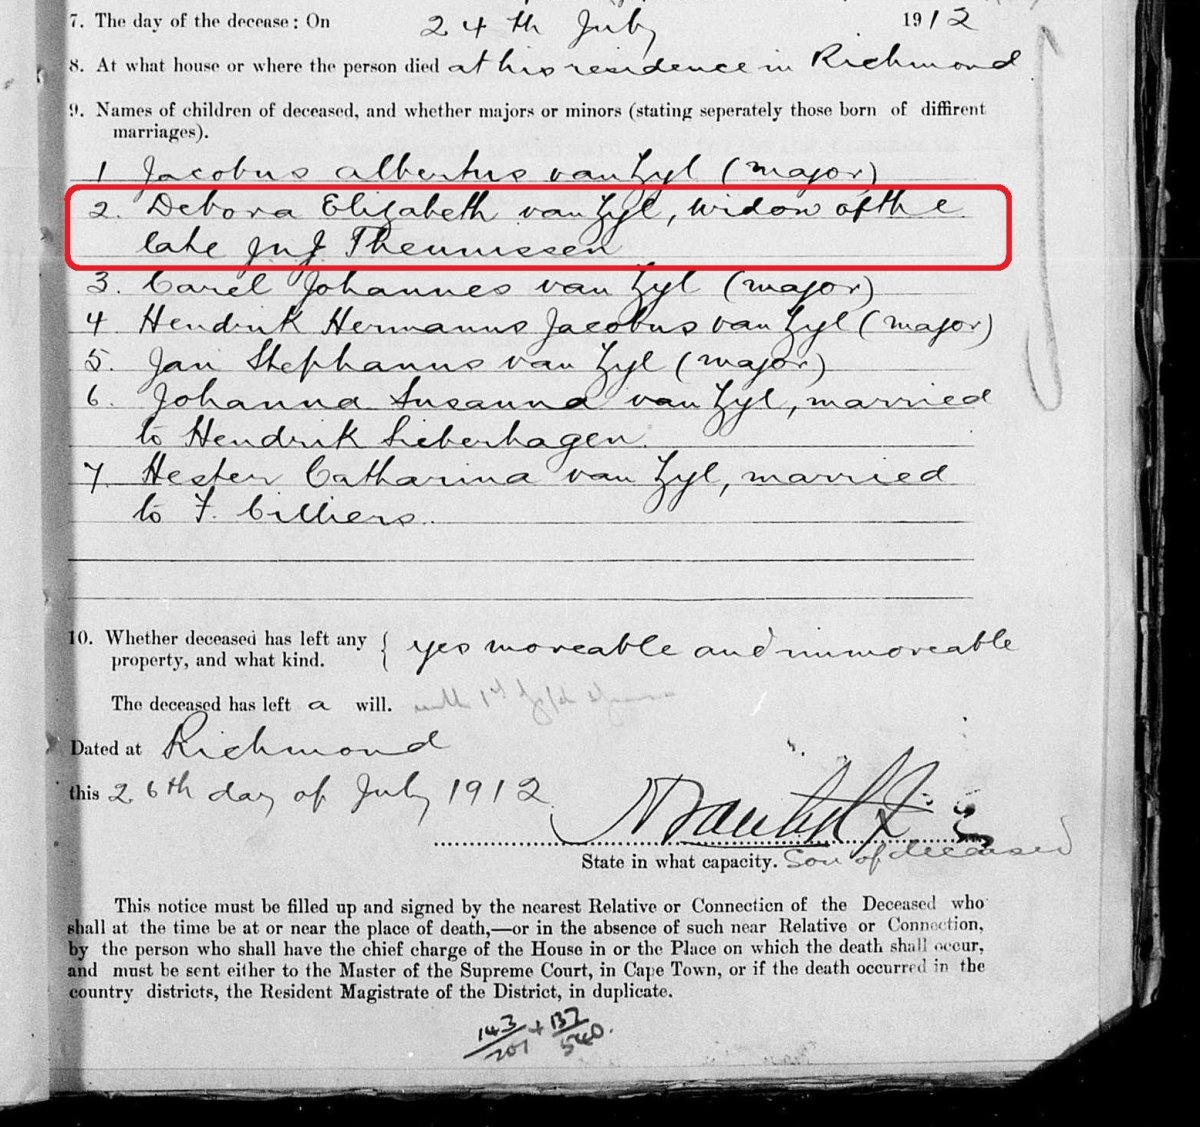 7. The day of the decease: On 24th July 1912
8. At what house or where the person died at his residence in Richmond
9. Names of children of deceased, and whether majors or minors (stating seperately those born of diffirent
marriages).
1 Jacobus Albertus van Zyl (major)
2. Debora Elizabeth van Zyl, widow of the
late J n J Theunissen
3. Carel Johannes van Zyl (major)
4 Hendrik Hermanus Jacobus van Zyl (major)
5. Jan Stephanus van Zyl (major)
6. Johanna Susanna van Zyl, married
to Hendrik Liebenhagen.
7. Hester Catharina van Zyl, married
to F. Cilliers.
10. Whether deceased has left any
property, and what kind. { yes moveable and immoveable
The deceased has left a will.
Dated at Richmond
this 26th day of July 1912
State in what capacity. Son of deceased
This notice must be filled up and signed by the nearest Relative or Connection of the Deceased who
shall at the time be at or near the place of death,—or in the absence of such near Relative or Connection,
by the person who shall have the chief charge of the House in or the Place on which the death shall occur,
and must be sent either to the Master of the Supreme Court, in Cape Town, or if the death occurred in the
country districts, the Resident Magistrate of the District, in duplicate.
143 + 137
201 540.